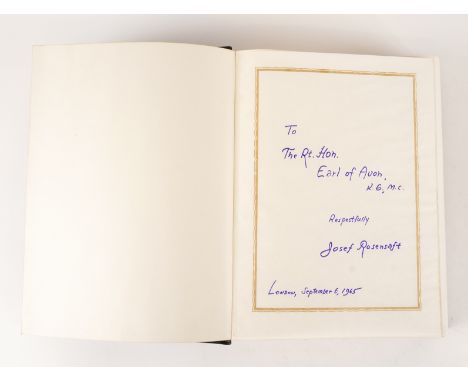 To
The Rt. Hon.
Earl of Avon,
K.G., M.C.
Respectfully
Josef Rosensaft
London, September 6, 1965